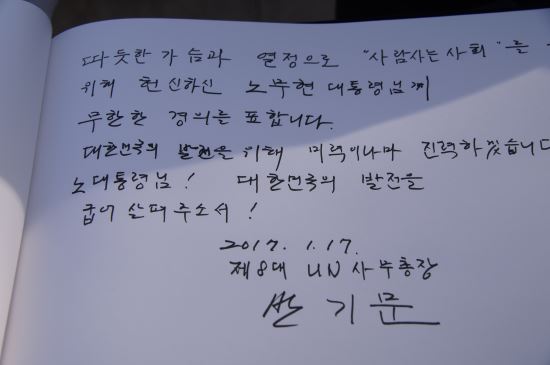 따듯한 가슴과 열정으로 "사람사는 사회"를
위해 헌신하신 노무현 대통령님께
무한한 경의를 표합니다.
대한민국의 발전을 위해 미력이나마 진력하겠습니다
노대통령님! 대한민국의 발전을
굽어 살펴주소서!
2017. 1. 17.
제8대 UN 사무총장
반기문